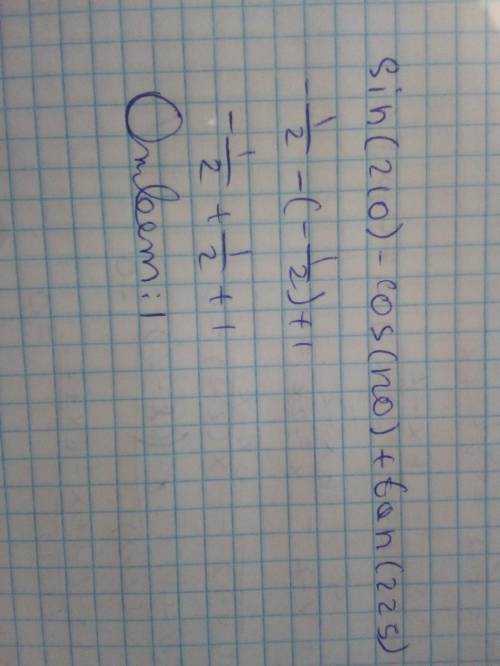 sin(210) - cos(120) + tan(225)
-1/2 - (-1/2) + 1
-1/2 + 1/2 + 1
Ответ: 1